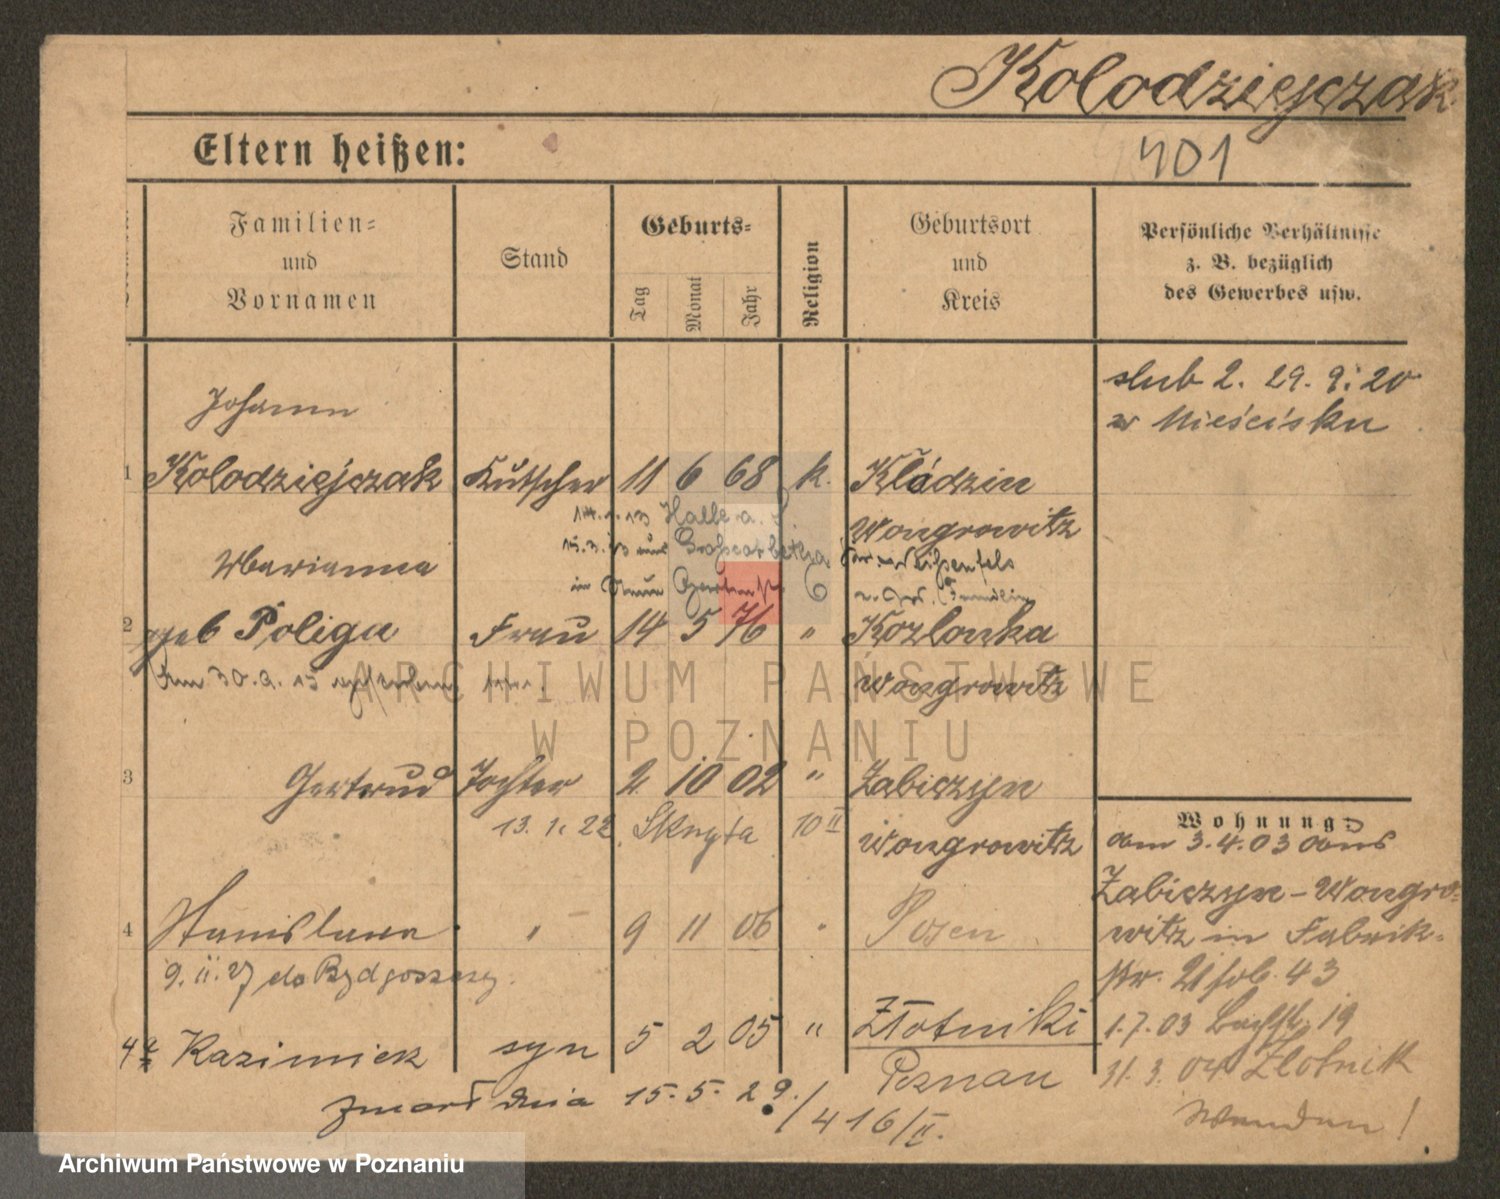 Kolodziejczak
401
Eltern heißen:
Familien-
und
Vornamen
Stand
Geburts-
Tag
Monat
Jahr
Religion
Geburtsort
und
Kreis
Persönliche Verhältnisse
z. B. bezüglich
des Gewerbes usw.
Johann
1 Kolodziejczak Kutscher 11 6 68 k. Kłodzin
Wongrowitz
slub 2. 29. 9. 20
w Mieścisku
13 Halle a. S.
15.3.13 aus
in
Marianna
2 geb Poliga Frau 14 5 76 " Kozlonka
Wongrowitz
Am 30.9.15
3 Gertrud Tochter 2 10 02 " Zabiczyn
Wongrowitz
13. 1. 22 10 II
Wohnung:
am 3.4.03 aus
Zabiczyn-Wongro-
witz in Fabrik-
str. 21 43
1.7.03 19
31.3.04 Zlotnik
Wenden!
4 Stanislawa " 9 11 06 Posen
9.II.27 do Bydgoszczy.
4a Kazimierz syn 5 2 05 " Złotniki
Poznan
zmarł dnia 15. 5. 29./416/II.
ARCHIWUM PAŃSTWOWE
W POZNANIU
Archiwum Państwowe w Poznaniu